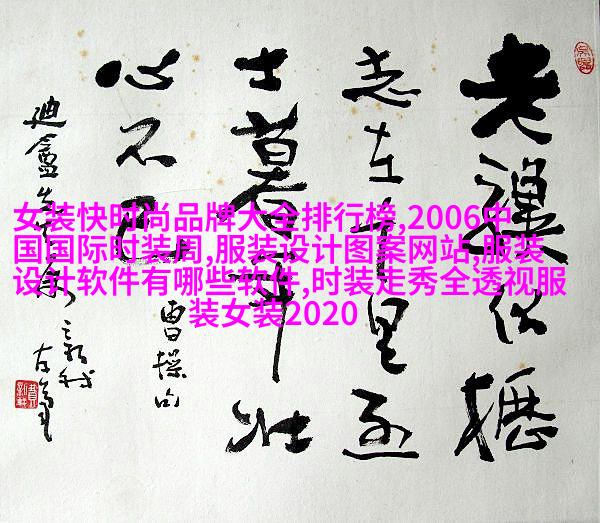 老驥伏櫪
志在千里烈
士暮年壮
心不已
曹操句
迪盦
女装快时尚品牌大全排行榜,2006中
国国际时装周,服装设计图案网站,服装
设计软件有哪些软件,时装走秀全透视服
装女装2020